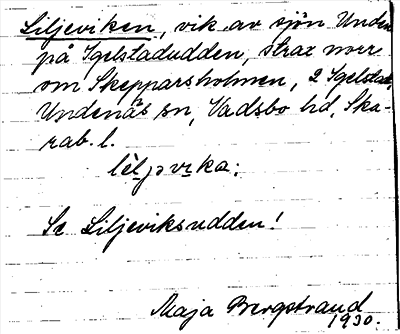 Liljeviken, vik av sjön Unden
på Igelstadudden, strax norr
om Skepparsholmen, 2 Igelstad,
Undenäs sn, Vadsbo hd, Ska-
rab. l.
Se Liljeviksudden!
Maja Bergstrand
1930.